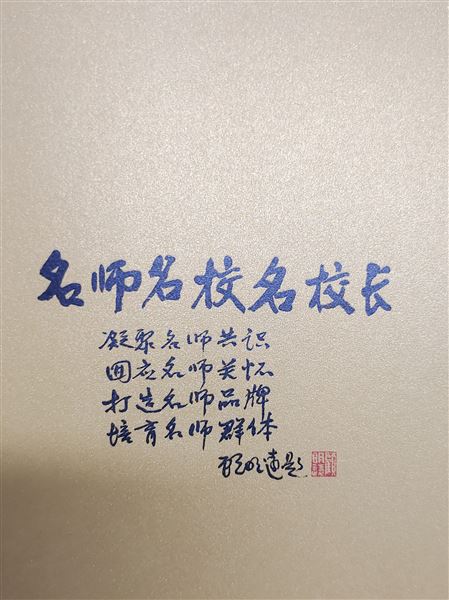 名师名校名校长
凝聚名师共识
回应名师关怀
打造名师品牌
培育名师群体
顾明远题